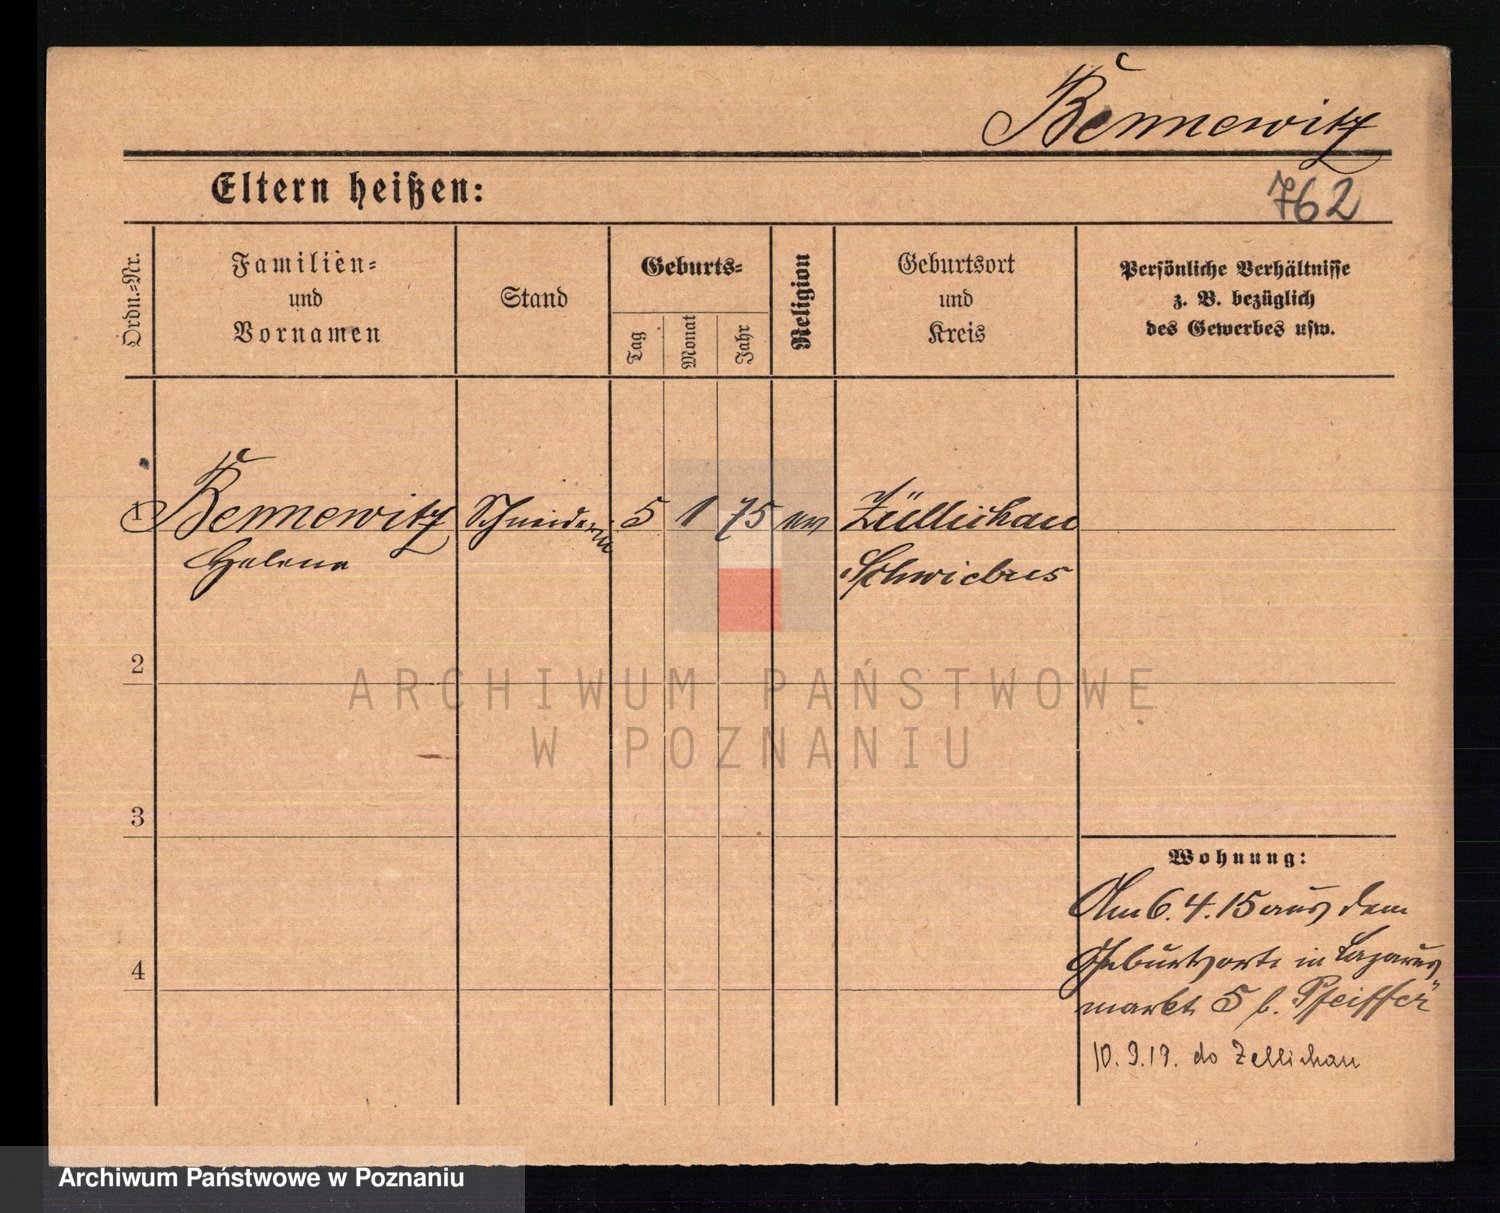 Bennewitz
Eltern heißen:
762
Ordn.=Nr.
Familien=
und
Vornamen
Stand
Geburts=
Tag
Monat
Jahr
Religion
Geburtsort
und
Kreis
Persönliche Verhältnisse
z. B. bezüglich
des Gewerbes usw.
1 Bennewitz Schneiderin 5 1 75 ev Züllichau
Helene Schwiebus
2
ARCHIWUM PAŃSTWOWE
W POZNANIU
3
Wohnung:
Am 6.4.15 aus dem
Geburtsorte in Lazarus
markt 5 b. Pfeiffer
4
10.9.19. do Zellichau
Archiwum Państwowe w Poznaniu